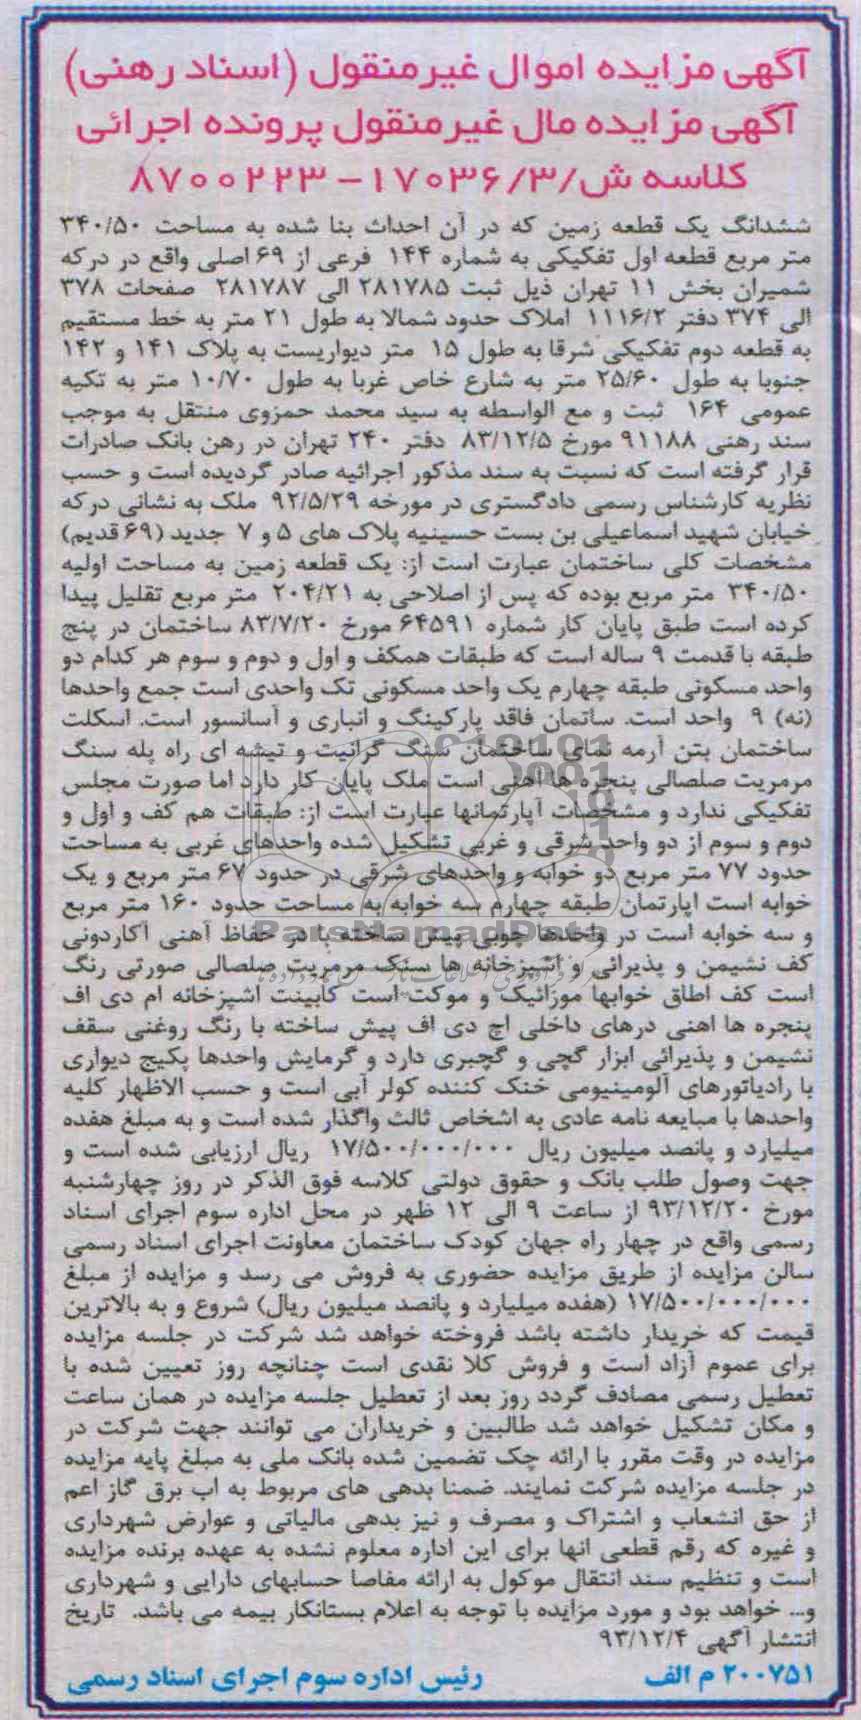 آگهی مزایده اموال غیرمنقول (اسناد رهنی)
آگهی مزایده مال غیرمنقول پرونده اجرائی
کلاسه ش/۱۷۰۳۶/۳ - ۸۷۰۰۲۲۳
ششدانگ یک قطعه زمین که در آن احداث بنا شده به مساحت ۳۴۰/۵۰
متر مربع قطعه اول تفکیکی به شماره ۱۴۴ فرعی از ۶۹ اصلی واقع در درکه
شمیران بخش ۱۱ تهران ذیل ثبت ۲۸۱۷۸۵ الی ۲۸۱۷۸۷ صفحات ۳۷۸
الی ۳۷۴ دفتر ۱۱۱۶/۲ املاک حدود شمالا به طول ۲۱ متر به خط مستقیم
به قطعه دوم تفکیکی شرقا به طول ۱۵ متر دیواریست به پلاک ۱۴۱ و ۱۴۲
جنوبا به طول ۲۵/۶۰ متر به شارع خاص غربا به طول ۱۰/۷۰ متر به تکیه
عمومی ۱۶۴ ثبت و مع الواسطه به سید محمد حمزوی منتقل به موجب
سند رهنی ۹۱۱۸۸ مورخ ۸۳/۱۲/۵ دفتر ۲۴۰ تهران در رهن بانک صادرات
قرار گرفته است که نسبت به سند مذکور اجرائیه صادر گردیده است و حسب
نظریه کارشناس رسمی دادگستری در مورخه ۹۲/۵/۲۹ ملک به نشانی درکه
خیابان شهید اسماعیلی بن بست حسینیه پلاک های ۵ و ۷ جدید (۶۹ قدیم)
مشخصات کلی ساختمان عبارت است از: یک قطعه زمین به مساحت اولیه
۳۴۰/۵۰ متر مربع بوده که پس از اصلاحی به ۲۰۴/۲۱ متر مربع تقلیل پیدا
کرده است طبق پایان کار شماره ۶۴۵۹۱ مورخ ۸۳/۷/۲۰ ساختمان در پنج
طبقه با قدمت ۹ ساله است که طبقات همکف و اول و دوم و سوم هر کدام دو
واحد مسکونی طبقه چهارم یک واحد مسکونی تک واحدی است جمع واحدها
(نه) ۹ واحد است. ساتمان فاقد پارکینگ و انباری و آسانسور است. اسکلت
ساختمان بتن آرمه نمای ساختمان سنگ گرانیت و تیشه ای راه پله سنگ
مرمریت صلصالی پنجره ها اهنی است ملک پایان کار دارد اما صورت مجلس
تفکیکی ندارد و مشخصات آپارتمانها عبارت است از: طبقات هم کف و اول و
دوم و سوم از دو واحد شرقی و غربی تشکیل شده واحدهای غربی به مساحت
حدود ۷۷ متر مربع دو خوابه و واحدهای شرقی در حدود ۶۷ متر مربع و یک
خوابه است اپارتمان طبقه چهارم سه خوابه به مساحت حدود ۱۶۰ متر مربع
و سه خوابه است در واحدها چوبی پیش ساخته با در حفاظ آهنی آکاردونی
کف نشیمن و پذیرائی و اشپزخانه ها سنگ مرمریت صلصالی صورتی رنگ
است کف اطاق خوابها موزائیک و موکت است کابینت اشپزخانه ام دی اف
پنجره ها اهنی درهای داخلی اچ دی اف پیش ساخته با رنگ روغنی سقف
نشیمن و پذیرائی ابزار گچی و گچبری دارد و گرمایش واحدها پکیج دیواری
با رادیاتورهای آلومینیومی خنک کننده کولر آبی است و حسب الاظهار کلیه
واحدها با مبایعه نامه عادی به اشخاص ثالث واگذار شده است و به مبلغ هفده
میلیارد و پانصد میلیون ریال ۱۷/۵۰۰/۰۰۰/۰۰۰ ریال ارزیابی شده است و
جهت وصول طلب بانک و حقوق دولتی کلاسه فوق الذکر در روز چهارشنبه
مورخ ۹۳/۱۲/۲۰ از ساعت ۹ الی ۱۲ ظهر در محل اداره سوم اجرای اسناد
رسمی واقع در چهار راه جهان کودک ساختمان معاونت اجرای اسناد رسمی
سالن مزایده از طریق مزایده حضوری به فروش می رسد و مزایده از مبلغ
۱۷/۵۰۰/۰۰۰/۰۰۰ (هفده میلیارد و پانصد میلیون ریال) شروع و به بالاترین
قیمت که خریدار داشته باشد فروخته خواهد شد شرکت در جلسه مزایده
برای عموم آزاد است و فروش کلا نقدی است چنانچه روز تعیین شده با
تعطیل رسمی مصادف گردد روز بعد از تعطیل جلسه مزایده در همان ساعت
و مکان تشکیل خواهد شد طالبین و خریداران می توانند جهت شرکت در
مزایده در وقت مقرر با ارائه چک تضمین شده بانک ملی به مبلغ پایه مزایده
در جلسه مزایده شرکت نمایند. ضمنا بدهی های مربوط به اب برق گاز اعم
از حق انشعاب و اشتراک و مصرف و نیز بدهی مالیاتی و عوارض شهرداری
و غیره که رقم قطعی انها برای این اداره معلوم نشده به عهده برنده مزایده
است و تنظیم سند انتقال موکول به ارائه مفاصا حسابهای دارایی و شهرداری
و... خواهد بود و مورد مزایده با توجه به اعلام بستانکار بیمه می باشد. تاریخ
انتشار آگهی ۹۳/۱۲/۴
۲۰۰۷۵۱ م الف رئیس اداره سوم اجرای اسناد رسمی
ParsNamadData